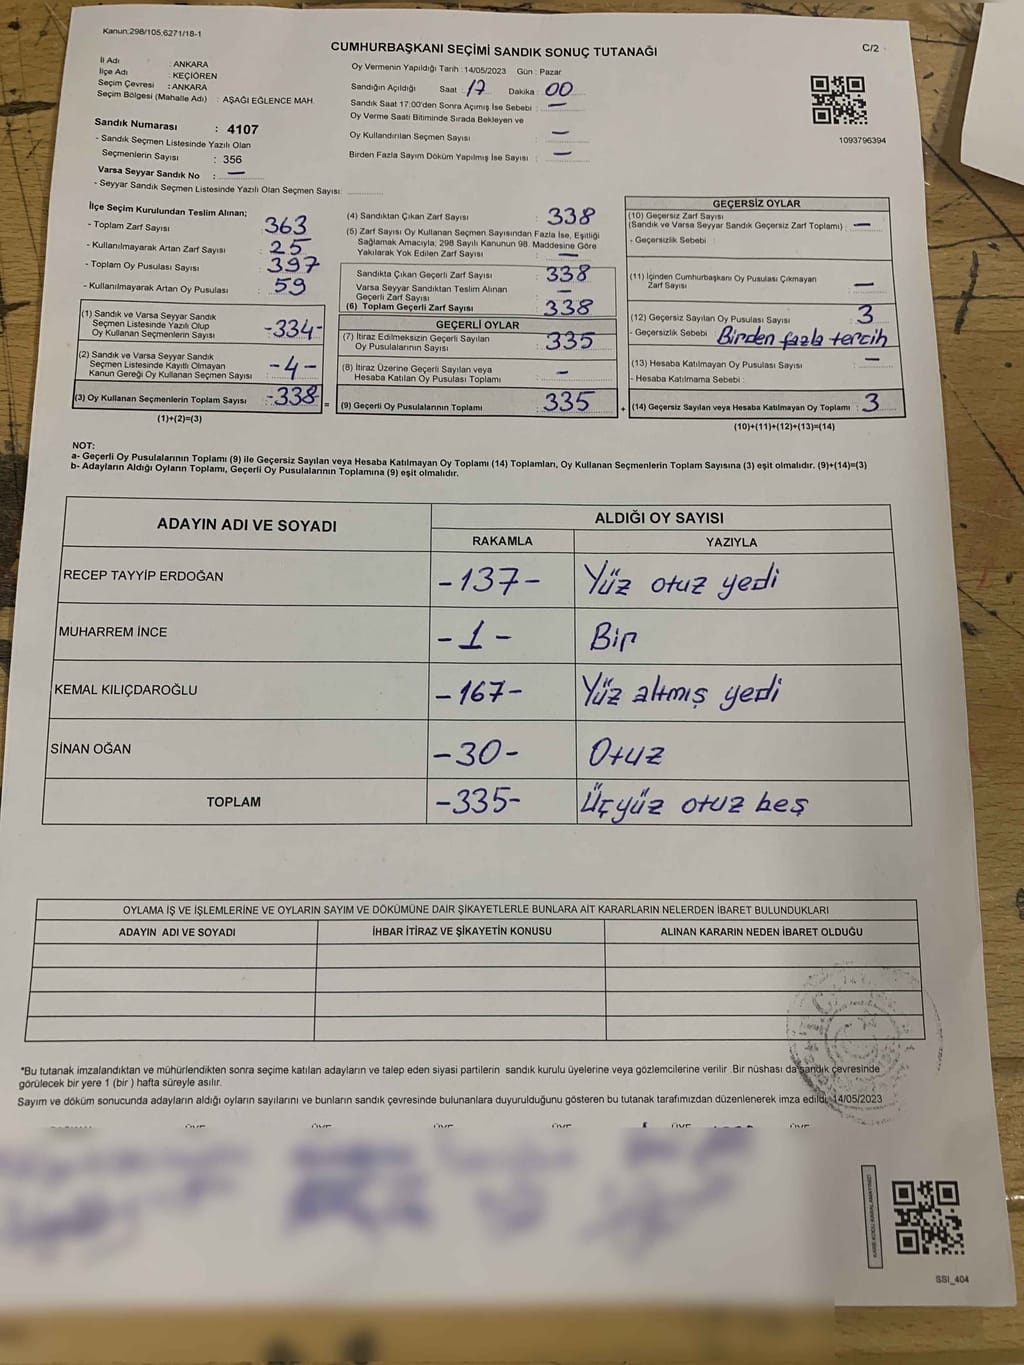 Kanun:298/105,6271/18-1
CUMHURBAŞKANI SEÇİMİ SANDIK SONUÇ TUTANAĞI
C/2
İl Adı : ANKARA
İlçe Adı : KEÇİÖREN
Seçim Çevresi : ANKARA
Seçim Bölgesi (Mahalle Adı) : AŞAĞI EĞLENCE MAH.
Oy Vermenin Yapıldığı Tarih : 14/05/2023 Gün : Pazar
Sandığın Açıldığı Saat : 17 Dakika : 00
Sandık Saat 17:00'den Sonra Açımış İse Sebebi : —
Oy Verme Saati Bitiminde Sırada Bekleyen ve
Oy Kullandırılan Seçmen Sayısı : —
Birden Fazla Sayım Döküm Yapılmış İse Sayısı : —
1093796394
Sandık Numarası : 4107
- Sandık Seçmen Listesinde Yazılı Olan
Seçmenlerin Sayısı : 356
Varsa Seyyar Sandık No : —
- Seyyar Sandık Seçmen Listesinde Yazılı Olan Seçmen Sayısı:
İlçe Seçim Kurulundan Teslim Alınan;
- Toplam Zarf Sayısı : 363
- Kullanılmayarak Artan Zarf Sayısı : 25
- Toplam Oy Pusulası Sayısı : 397
- Kullanılmayarak Artan Oy Pusulası : 59
(1) Sandık ve Varsa Seyyar Sandık
Seçmen Listesinde Yazılı Olup
Oy Kullanan Seçmenlerin Sayısı : -334-
(2) Sandık ve Varsa Seyyar Sandık
Seçmen Listesinde Kayıtlı Olmayan
Kanun Gereği Oy Kullanan Seçmen Sayısı : -4-
(3) Oy Kullanan Seçmenlerin Toplam Sayısı : -338-
(1)+(2)=(3)
(4) Sandıktan Çıkan Zarf Sayısı : 338
(5) Zarf Sayısı Oy Kullanan Seçmen Sayısından Fazla İse, Eşitliği
Sağlamak Amacıyla; 298 Sayılı Kanunun 98. Maddesine Göre
Yakılarak Yok Edilen Zarf Sayısı : —
Sandıkta Çıkan Geçerli Zarf Sayısı : 338
Varsa Seyyar Sandıktan Teslim Alınan
Geçerli Zarf Sayısı : —
(6) Toplam Geçerli Zarf Sayısı : 338
GEÇERLİ OYLAR
(7) İtiraz Edilmeksizin Geçerli Sayılan
Oy Pusulalarının Sayısı : 335
(8) İtiraz Üzerine Geçerli Sayılan veya
Hesaba Katılan Oy Pusulası Toplamı : —
= (9) Geçerli Oy Pusulalarının Toplamı : 335
GEÇERSİZ OYLAR
(10) Geçersiz Zarf Sayısı
(Sandık ve Varsa Seyyar Sandık Geçersiz Zarf Toplamı) : —
- Geçersizlik Sebebi :
(11) İçinden Cumhurbaşkanı Oy Pusulası Çıkmayan
Zarf Sayısı : —
(12) Geçersiz Sayılan Oy Pusulası Sayısı : 3
- Geçersizlik Sebebi : Birden fazla tercih
(13) Hesaba Katılmayan Oy Pusulası Sayısı : —
- Hesaba Katılmama Sebebi :
+ (14) Geçersiz Sayılan veya Hesaba Katılmayan Oy Toplamı : 3
(10)+(11)+(12)+(13)=(14)
NOT:
a- Geçerli Oy Pusulalarının Toplamı (9) ile Geçersiz Sayılan veya Hesaba Katılmayan Oy Toplamı (14) Toplamları, Oy Kullanan Seçmenlerin Toplam Sayısına (3) eşit olmalıdır. (9)+(14)=(3)
b- Adayların Aldığı Oyların Toplamı, Geçerli Oy Pusulalarının Toplamına (9) eşit olmalıdır.
ADAYIN ADI VE SOYADI
ALDIĞI OY SAYISI
RAKAMLA YAZIYLA
RECEP TAYYİP ERDOĞAN -137- Yüz otuz yedi
MUHARREM İNCE -1- Bir
KEMAL KILIÇDAROĞLU -167- Yüz altmış yedi
SİNAN OĞAN -30- Otuz
TOPLAM -335- Üçyüz otuz beş
OYLAMA İŞ VE İŞLEMLERİNE VE OYLARIN SAYIM VE DÖKÜMÜNE DAİR ŞİKAYETLERLE BUNLARA AİT KARARLARIN NELERDEN İBARET BULUNDUKLARI
ADAYIN ADI VE SOYADI İHBAR İTİRAZ VE ŞİKAYETİN KONUSU ALINAN KARARIN NEDEN İBARET OLDUĞU
*Bu tutanak imzalandıktan ve mühürlendikten sonra seçime katılan adayların ve talep eden siyasi partilerin sandık kurulu üyelerine veya gözlemcilerine verilir .Bir nüshası da sandık çevresinde
görülecek bir yere 1 (bir ) hafta süreyle asılır.
Sayım ve döküm sonucunda adayların aldığı oyların sayılarını ve bunların sandık çevresinde bulunanlara duyurulduğunu gösteren bu tutanak tarafımızdan düzenlenerek imza edildi. 14/05/2023
KARE KODU KARALAMAYINIZ!
SSI_404